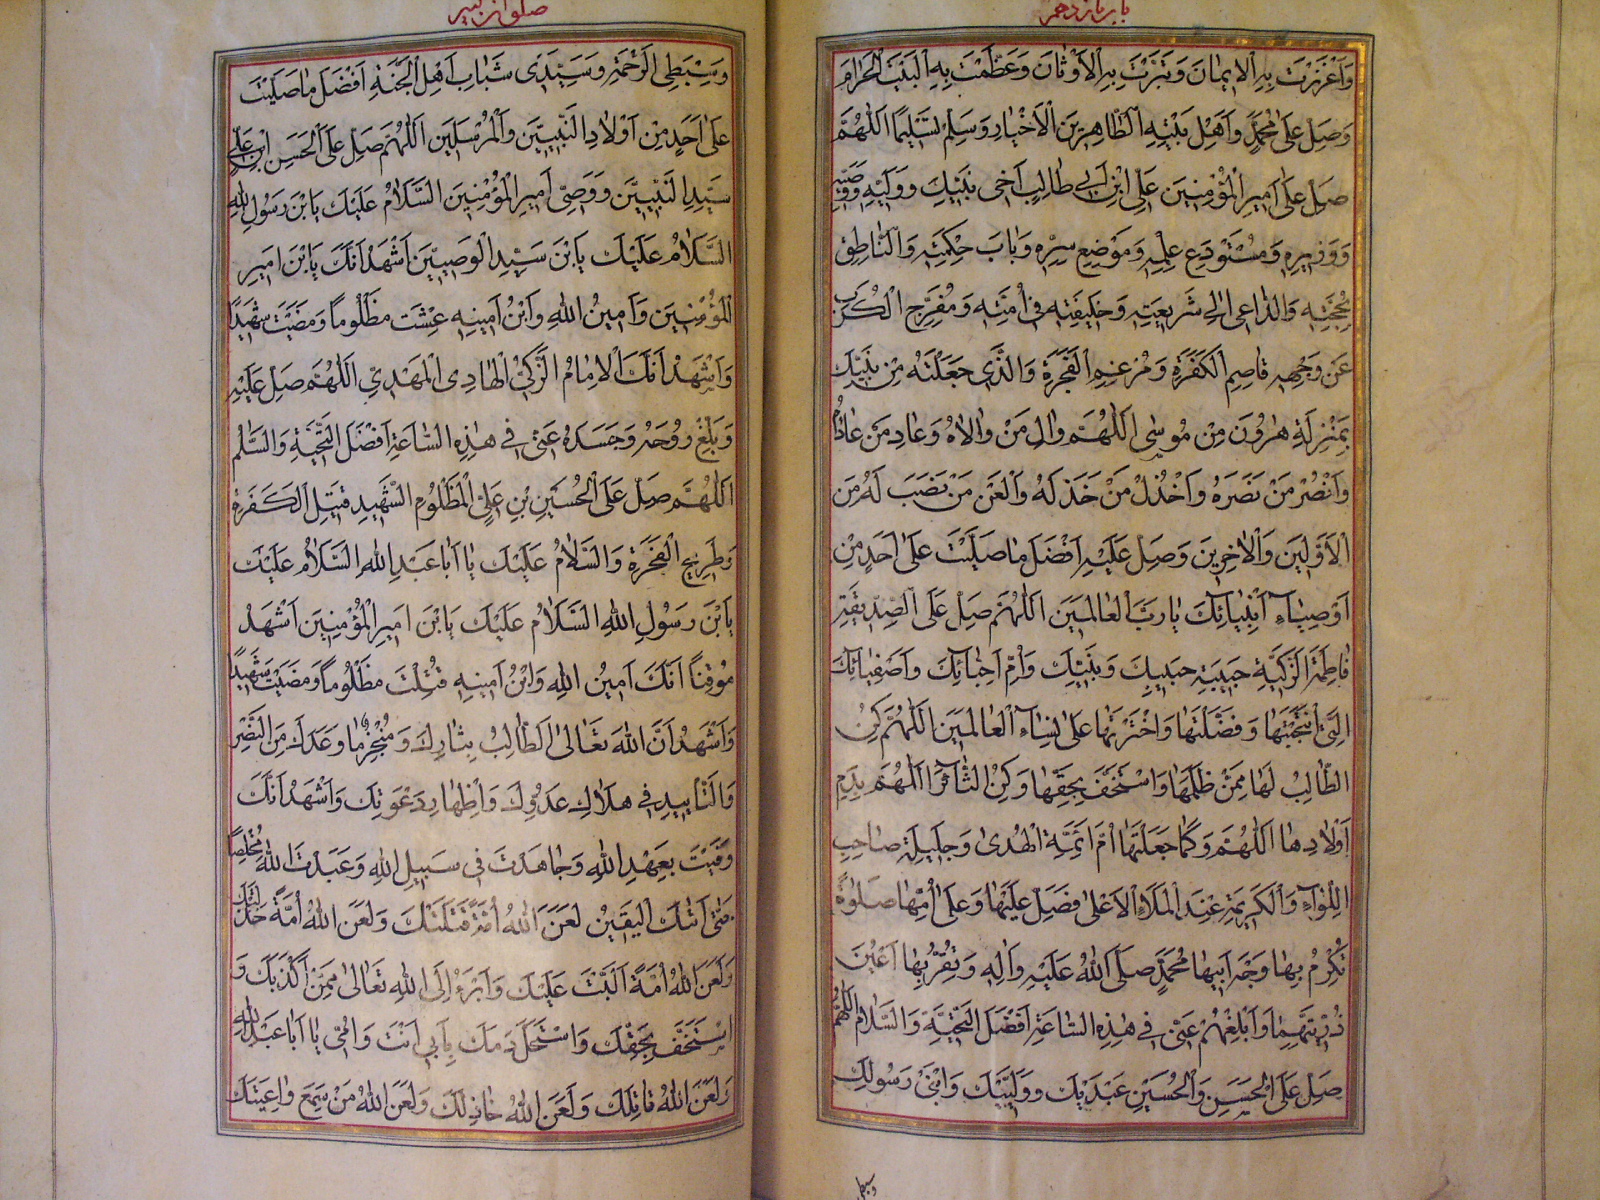 باب یازدهم
وَاَعْزَزْتَ بِهِ الْاِيمٰانَ وَتَبَّرْتَ بِهِ الْاَوْثٰانَ وَعَظَّمْتَ بِهِ الْبَيْتَ الْحَرٰامَ
وَصَلِّ عَلٰى مُحَمَّدٍ وَاَهْلِ بَيْتِهِ الطّٰاهِرِينَ الْاَخْيٰارِ وَسَلِّمْ تَسْلِيمًا اَللّٰهُمَّ
صَلِّ عَلٰى اَمِيرِ الْمُؤْمِنِينَ عَلِىِّ ابْنِ اَبِي طٰالِبٍ اَخِى نَبِيِّكَ وَوَلِيِّهِ وَوَصِيِّهِ
وَوَزِيرِهِ وَمُسْتَوْدَعِ عِلْمِهِ وَمَوْضِعِ سِرِّهِ وَبٰابِ حِكْمَتِهِ وَالنّٰاطِقِ
بِحُجَّتِهِ وَالدّٰاعِى اِلٰى شَرِيعَتِهِ وَخَلِيفَتِهِ فِى اُمَّتِهِ وَمُفَرِّجِ الْكُرَبِ
عَنْ وَجْهِهِ قٰاصِمِ الْكَفَرَةِ وَمُرْغِمِ الْفَجَرَةِ وَالَّذِى جَعَلْتَهُ مِنْ نَبِيِّكَ
بِمَنْزِلَةِ هٰرُونَ مِنْ مُوسٰى اَللّٰهُمَّ وٰالِ مَنْ وٰالاٰهُ وَعٰادِ مَنْ عٰادٰاهُ
وَانْصُرْ مَنْ نَصَرَهُ وَاخْذُلْ مَنْ خَذَلَهُ وَالْعَنْ مَنْ نَصَبَ لَهُ مِنَ
الْاَوَّلِينَ وَالْاٰخِرِينَ وَصَلِّ عَلَيْهِ اَفْضَلَ مٰا صَلَّيْتَ عَلٰى اَحَدٍ مِنْ
اَوْصِيٰاءِ اَنْبِيٰائِكَ يٰا رَبَّ الْعٰالَمِينَ اَللّٰهُمَّ صَلِّ عَلَى الصِّدِّيقَةِ
فٰاطِمَةَ الزَّكِيَّةِ حَبِيبَةِ حَبِيبِكَ وَنَبِيِّكَ وَاُمِّ اَحِبّٰائِكَ وَاَصْفِيٰائِكَ
الَّتِى انْتَجَبْتَهٰا وَفَضَّلْتَهٰا وَاخْتَرْتَهٰا عَلٰى نِسٰاءِ الْعٰالَمِينَ اَللّٰهُمَّ كُنِ
الطّٰالِبَ لَهٰا مِمَّنْ ظَلَمَهٰا وَاسْتَخَفَّ بِحَقِّهٰا وَكُنِ الثّٰائِرَ اَللّٰهُمَّ بِدَمِ
اَوْلٰادِهٰا اَللّٰهُمَّ وَكَمٰا جَعَلْتَهٰا اُمَّ اَئِمَّةِ الْهُدٰى وَحَلِيلَةَ صٰاحِبِ
اللِّوٰاءِ وَالْكَرِيمَةَ عِنْدَ الْمَلَاءِ الْاَعْلٰى فَصَلِّ عَلَيْهٰا وَعَلٰى اُمِّهٰا صَلٰوةً
تُكْرِمُ بِهٰا وَجْهَ اَبِيهٰا مُحَمَّدٍ صَلَّى اللّٰهُ عَلَيْهِ وَاٰلِهِ وَتُقِرُّ بِهٰا اَعْيُنَ
ذُرِّيَّتِهِمٰا وَاَبْلِغْهُمْ عَنِّى فِى هٰذِهِ السّٰاعَةِ اَفْضَلَ التَّحِيَّةِ وَالسَّلٰامِ اَللّٰهُمَّ
صَلِّ عَلَى الْحَسَنِ وَالْحُسَيْنِ عَبْدَيْكَ وَوَلِيَّيْكَ وَابْنَىْ رَسُولِكَ
وسبطی
وَسِبْطَىِ الرَّحْمَةِ وَسَيِّدَىْ شَبٰابِ اَهْلِ الْجَنَّةِ اَفْضَلَ مٰا صَلَّيْتَ
عَلٰى اَحَدٍ مِنْ اَوْلٰادِ النَّبِيِّينَ وَالْمُرْسَلِينَ اَللّٰهُمَّ صَلِّ عَلَى الْحَسَنِ ابْنِ عَلِىٍّ
سَيِّدِ النَّبِيِّينَ وَوَصِىِّ اَمِيرِ الْمُؤْمِنِينَ اَلسَّلٰامُ عَلَيْكَ يَابْنَ رَسُولِ اللّٰهِ
اَلسَّلٰامُ عَلَيْكَ يَابْنَ سَيِّدِ الْوَصِيِّينَ اَشْهَدُ اَنَّكَ يَابْنَ اَمِيرِ
الْمُؤْمِنِينَ وَاَمِينُ اللّٰهِ وَابْنُ اَمِينِهِ عِشْتَ مَظْلُوماً وَمَضَيْتَ شَهِيدًا
وَاَشْهَدُ اَنَّكَ الْاِمٰامُ الزَّكِىُّ الْهٰادِى الْمَهْدِىُّ اَللّٰهُمَّ صَلِّ عَلَيْهِ
وَبَلِّغْ رُوحَهُ وَجَسَدَهُ عَنِّى فِى هٰذِهِ السّٰاعَةِ اَفْضَلَ التَّحِيَّةِ وَالسَّلٰمِ
اَللّٰهُمَّ صَلِّ عَلَى الْحُسَيْنِ بْنِ عَلِىٍّ الْمَظْلُومِ الشَّهِيدِ قَتِيلِ الْكَفَرَةِ
وَطَرِيحِ الْفَجَرَةِ وَالسَّلٰامُ عَلَيْكَ يٰا اَبٰا عَبْدِ اللّٰهِ اَلسَّلٰامُ عَلَيْكَ
يَابْنَ رَسُولِ اللّٰهِ اَلسَّلٰامُ عَلَيْكَ يَابْنَ اَمِيرِ الْمُؤْمِنِينَ اَشْهَدُ
مُوقِناً اَنَّكَ اَمِينُ اللّٰهِ وَابْنُ اَمِينِهِ قُتِلْتَ مَظْلُوماً وَمَضَيْتَ شَهِيدًا
وَاَشْهَدُ اَنَّ اللّٰهَ تَعٰالىٰ الطّٰالِبُ بِثٰارِكَ وَمُنْجِزُ مٰا وَعَدَكَ مِنَ النَّصْرِ
وَالتَّأْيِيدِ فِى هَلٰاكِ عَدُوِّكَ وَاِظْهٰارِ دَعْوَتِكَ وَاَشْهَدُ اَنَّكَ
وَفَيْتَ بِعَهْدِ اللّٰهِ وَجٰاهَدْتَ فِى سَبِيلِ اللّٰهِ وَعَبَدْتَ اللّٰهَ مُخْلِصًا
حَتّٰى اَتٰيكَ الْيَقِينُ لَعَنَ اللّٰهُ اُمَّةً قَتَلَتْكَ وَلَعَنَ اللّٰهُ اُمَّةً خَذَلَتْكَ
وَلَعَنَ اللّٰهُ اُمَّةً اَلَّبَتْ عَلَيْكَ وَاَبْرَءُ اِلَى اللّٰهِ تَعٰالىٰ مِمَّنْ اَكْذَبَكَ وَ
اسْتَخَفَّ بِحَقِّكَ وَاسْتَحَلَّ دَمَكَ بِاَبِى اَنْتَ وَاُمِّى يٰا اَبٰا عَبْدِ اللّٰهِ
وَلَعَنَ اللّٰهُ قٰاتِلَكَ وَلَعَنَ اللّٰهُ خٰاذِلَكَ وَلَعَنَ اللّٰهُ مَنْ سَمِعَ وٰاعِيَتَكَ